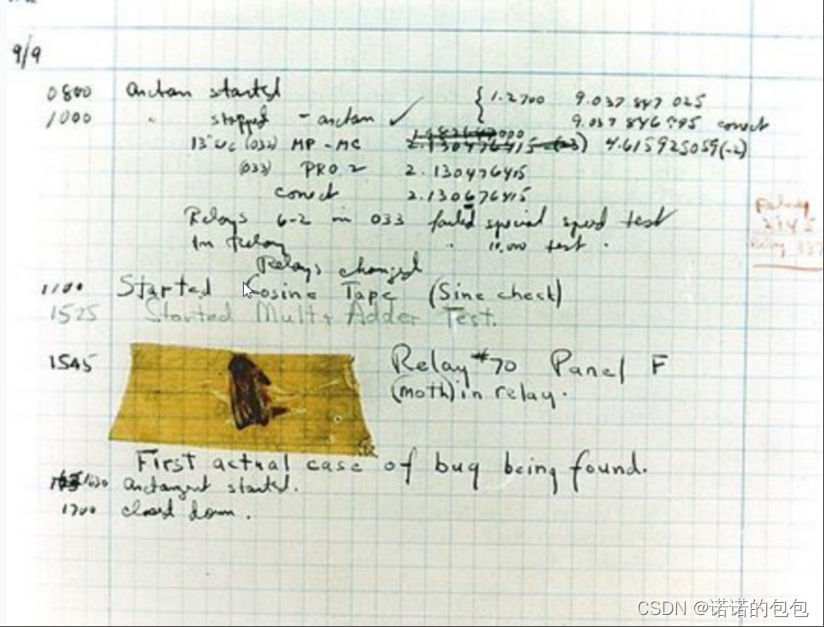 9/9
0800 Antan started
1000 " stopped - antan ✓ { 1.2700 9.037 847 025
9.037 846 995 correct
13"uc (032) MP - MC 2.130476415 (-3) 4.615925059(-2)
(033) PRO 2 2.130476415
correct 2.130676415
Relays 6-2 in 033 failed special speed test
In Relay " 10,000 test .
Relay
Relays changed
1100 Started Cosine Tape (Sine check)
1525 Started Mult + Adder Test.
1545 Relay #70 Panel F
(moth) in relay.
First actual case of bug being found.
1630 antangent started.
1700 closed down .
CSDN @诺诺的包包